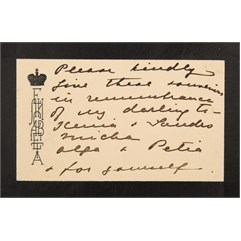 Please kindly
give these souvenirs
in remembrance
of my darling to -
Xenia & Sandro
Misha
Olga & Petia
& for yourself.